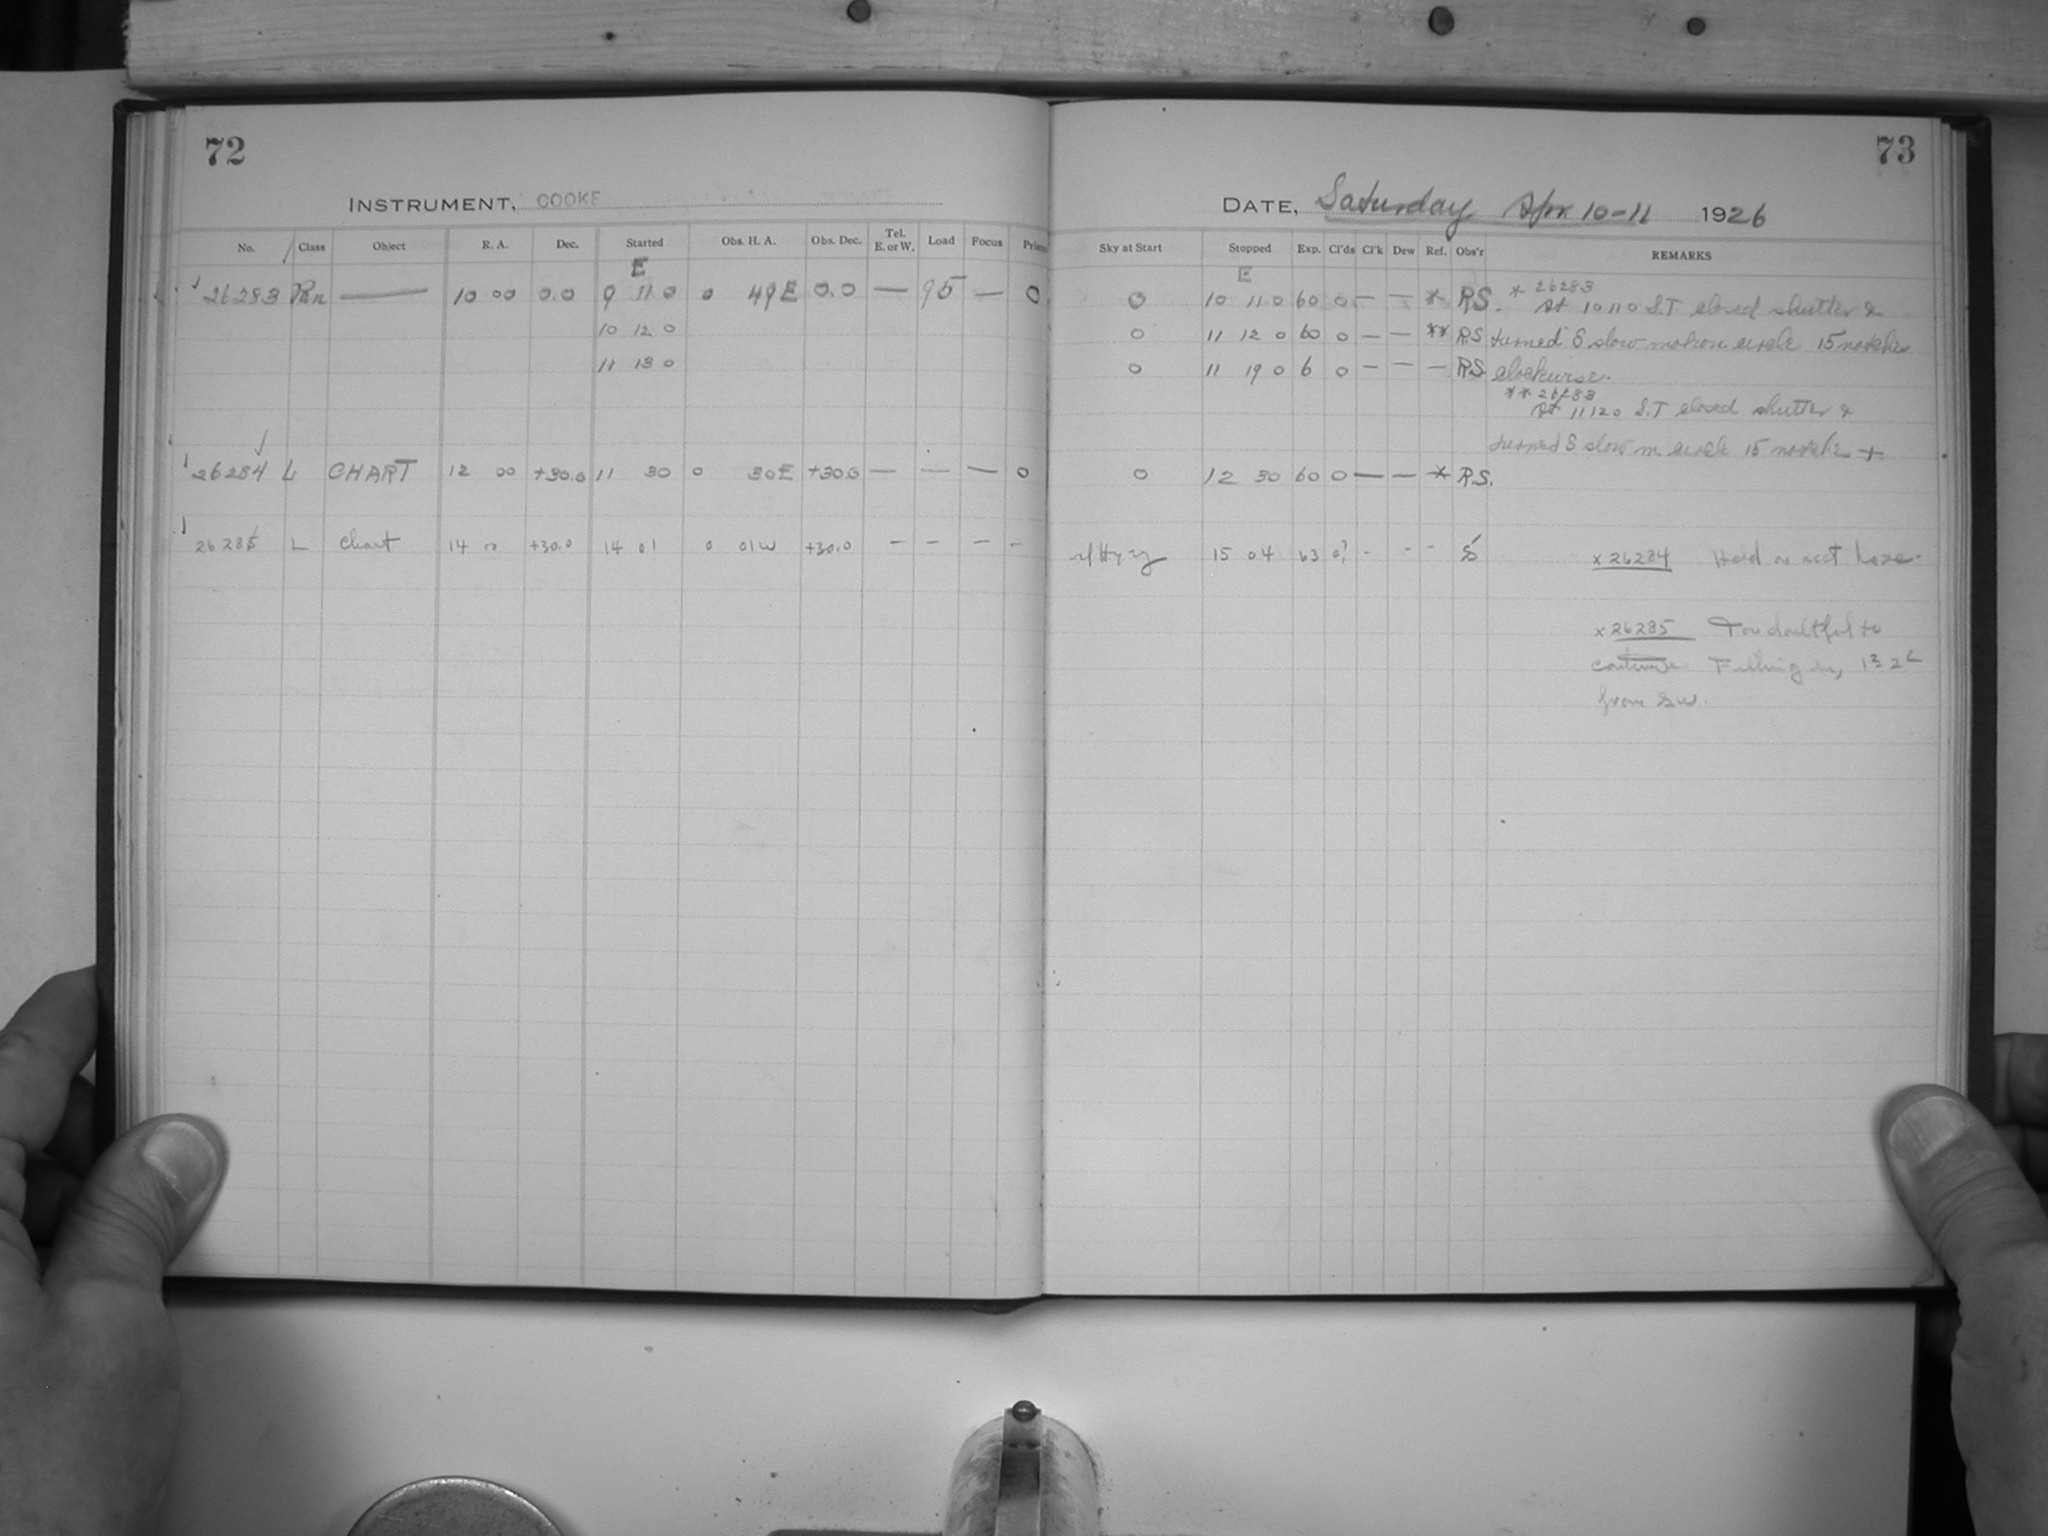 72
INSTRUMENT, COOKE
No. Class Object R. A. Dec. Started Obs. H. A. Obs. Dec. Tel. E. or W. Load Focus Prism
E
26283 — 10 00 0.0 9 11 0 0 49E 0.0 — 95 — 0
10 12 0
11 13 0
26284 L CHART 12 00 +30.0 11 30 0 30E +30.0 — — — 0
26285 L Chart 14 0 +30.0 14 01 0 01W +30.0 – – – –
73
DATE, Saturday Apr 10-11 1926
Sky at Start Stopped Exp. Cl'ds Cl'k Dew Ref. Obs'r REMARKS
E
0 10 11 0 60 0 — — * RS. * 26283
At 10 11 0 S.T closed shutter &
0 11 12 0 60 0 — — ** RS turned S slow motion circle 15 notches
0 11 19 0 6 0 — — — RS clockwise.
** 26283
At 11 12 0 S.T closed shutter &
turned S slow m. circle 15 notches +
0 12 30 60 0 — — * RS.
15 04 63 0? - - - S x 26284 haze.
x 26285 Too doubtful to
continue.
from SW.